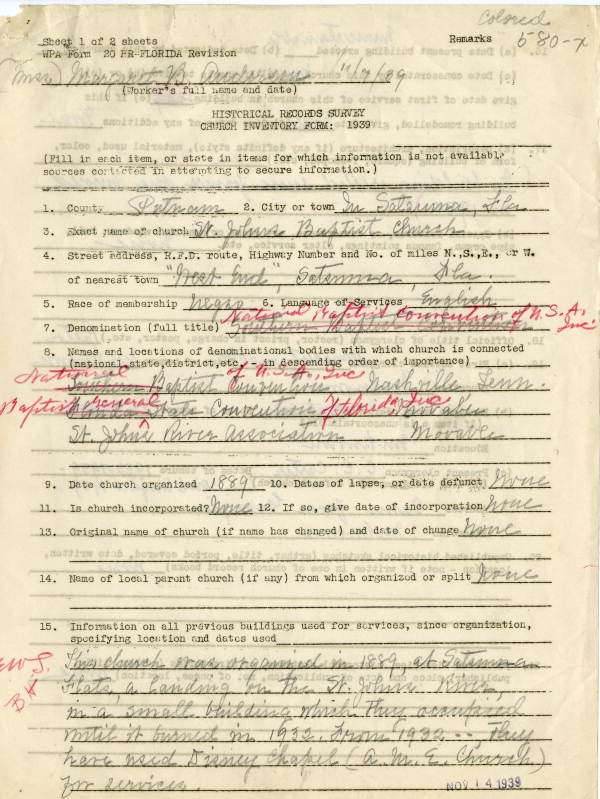 Colored
Sheet 1 of 2 sheets Remarks 580-x
WPA Form 20 HR-FLORIDA Revision
Miss Margaret B. Anderson 11/7/39
(Worker's full name and date)
HISTORICAL RECORDS SURVEY
CHURCH INVENTORY FORM: 1939
(Fill in each item, or state in items for which information is not available
sources contacted in attempting to secure information.)
1. County Putnam 2. City or town In Satsuma, Fla
3. Exact name of church St. Johns Baptist Church
4. Street address, R.F.D. route, Highway Number and No. of miles N.,S.,E., or W.
of nearest town "West End", Satsuma, Fla.
5. Race of membership Negro 6. Language of Services English
National Baptist Convention of U.S.A. Inc
7. Denomination (full title) Southern Baptist Convention
8. Names and locations of denominational bodies with which church is connected
(national, state, district, etc. - in descending order of importance)
National of U.S.A., Inc
Southern Baptist Convention Nashville Tenn.
Baptist General of Florida, Inc
Florida State Convention Movable
St. Johns River Association Movable
9. Date church organized 1889 10. Dates of lapse, or date defunct None
11. Is church incorporated? None 12. If so, give date of incorporation None
13. Original name of church (if name has changed) and date of change None
14. Name of local parent church (if any) from which organized or split None
15. Information on all previous buildings used for services, since organization,
specifying location and dates used
This church was organized in 1889, at Satsuma
Flats, a landing on the St. Johns River,
in a small building which they occupied
until it burned in 1932. From 1932 -- They
have used Disney Chapel (A.M.E. Church)
for services.
NOV 14 1939